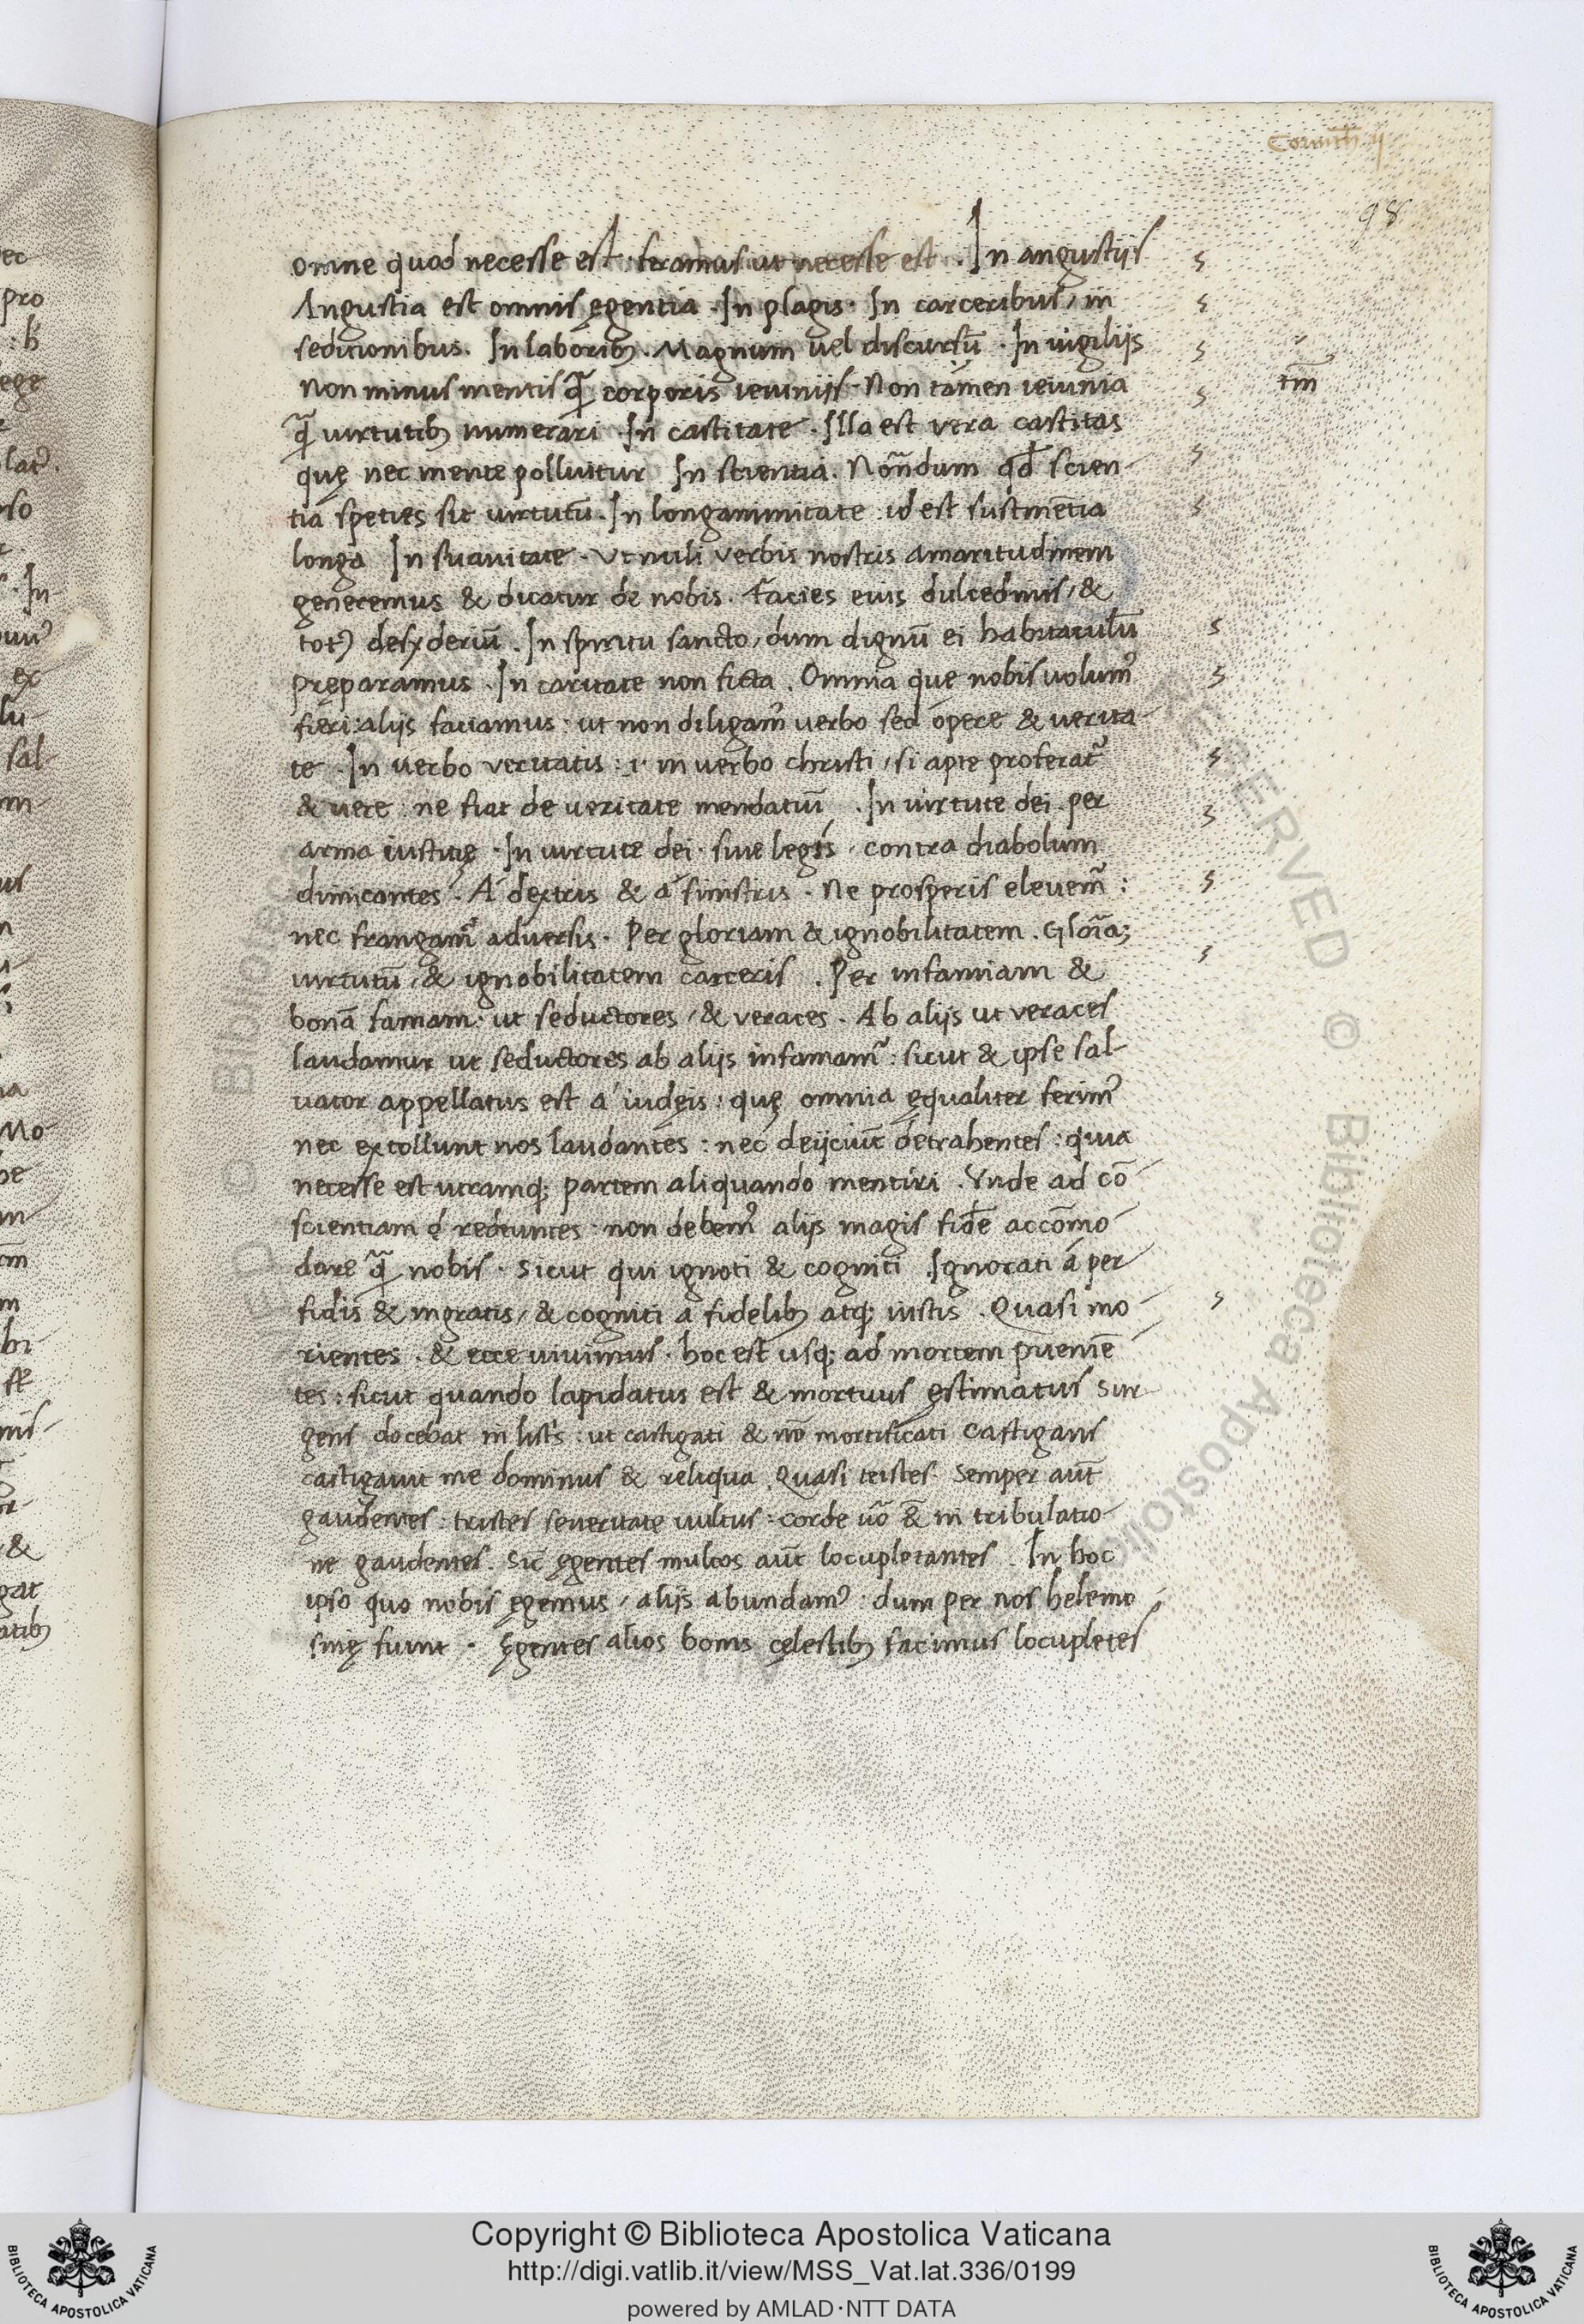 Corinth ij
98
omne quod necesse est feramus ut necesse est . In angustijs
Angustia est omnis ęgentia . In plagis . In carceribus / in
seditionibus . In laborib; . Magnum uel discursũ . In uigilijs
Non minus mentis q̃ corporis ieiunijs . Non tamen ieiunia
tm̃
q̃ uirtutib; numerari . In castitate . Illa est vera castitas
quę nec mente polluitur In scientia . Notãdum qđ scien-
tia speties sit uirtutũ . In longanimitate : id est sustinẽtia
longa In suauitate . Vt nuli verbis nostris amaritudinem
generemus & dicatur de nobis . facies eius dulcedinis / &
tot⁹ desyderiũ . In spiritu sancto / dum dignũ ei habitaculũ
pręparamus . In caritate non ficta . Omnia que nobis uolum⁹
fieri : alijs faciamus : ut non diligam⁹ verbo sed opere & uerita-
te . In uerbo veritatis : i· in uerbo christi / si apte proferat᷑
& uere : ne fiat de ueritate mendatiũ . In uirtute dei . per
arma iustitię . In uirtute dei . siue legis / contra diabolum
dimicantes . A dextris & a sinistris . Ne prosperis eleuem᷑ :
nec frangam᷑ aduersis . Per gloriam & ignobilitatem . Glõia;
uirtutũ / & ignobilitatem carceris . Per infamiam &
bonã famam : ut seductores / & veraces . Ab alijs ut veraces
laudamur ut seductores ab alijs infamam᷑ : sicut & ipse sal-
uator appellatus est á iudęis : quę omnia ęqualiter ferim⁹
nec extollunt nos laudantes : nec deijciũt detrahentes : quia
necesse est utramq; partem aliquando mentiri . Vnde ad cõ-
scientiam redeuntes : non debem⁹ alijs magis fidẽ accõmo-
dare q̃ nobis . Sicut qui ignoti & cogniti . Ignorati á per-
fidis & ingratis / & cogniti a fidelib; atq; iustis . Quasi mo-
rientes . & ecce uiuimus . hoc est usq; ad mortem pueniẽ-
tes : sicut quando lapidatus est & mortuus ęstimatus sur-
gens docebat in listris : ut castigati & nõ mortificati Castigans
castigauit me dominus & reliqua . Quasi tristes . Semper aũt
gaudentes : tristes seueritate uultus : corde uõ & in tribulatio-
ne gaudentes . Sic ęgentes multos aũt locupletantes . In hoc
ipso quo nobis ęgemus / alijs abundam⁹ : dum per nos helemo-
sinę fiunt . Ęgentes alios bonis cęlestib; facimus locupletes
Copyright © Biblioteca Apostolica Vaticana
http://digi.vatlib.it/view/MSS_Vat.lat.336/0199
powered by AMLAD·NTT DATA